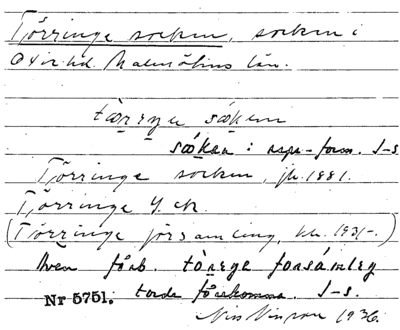 Törringe socken, socken i
Oxie hd. Malmöhus län.
tòręŋę sǻkęn
sǻkan : aspe-form. I-s.
Törringe socken, jb. 1881.
Törringe Y. ck.
(Törringe församling, kb. 1931-.)
Även förb. tòręŋę forsámlęŋ
Nr 5751. torde förekomma. I-s.
1936.